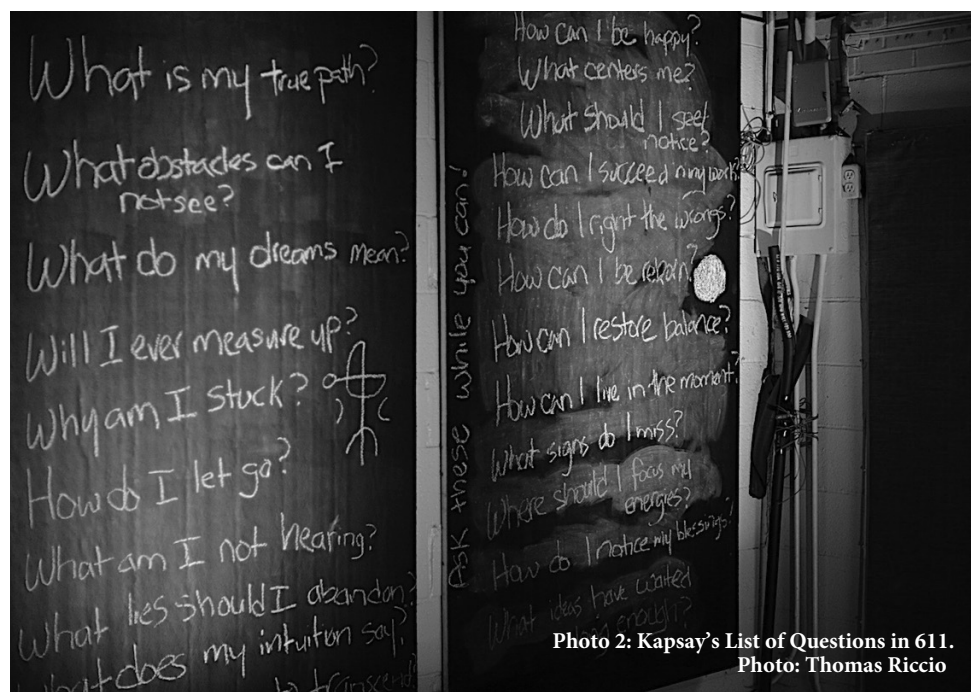 What is my true path?
What obstacles can I
not see?
What do my dreams mean?
Will I ever measure up?
Why am I stuck?
How do I let go?
What am I not hearing?
What lies should I abandon?
What does my intuition say?
to transcend?
Ask these while you can!
How can I be happy?
What centers me?
What should I see?
notice?
How can I succeed in my work?
How do I right the wrongs?
How can I be reborn?
How can I restore balance?
How can I live in the moment?
What signs do I miss?
Where should I focus my
energies?
How do I notice my blessings?
What ideas have waited
long enough?
Photo 2: Kapsay's List of Questions in 611.
Photo: Thomas Riccio